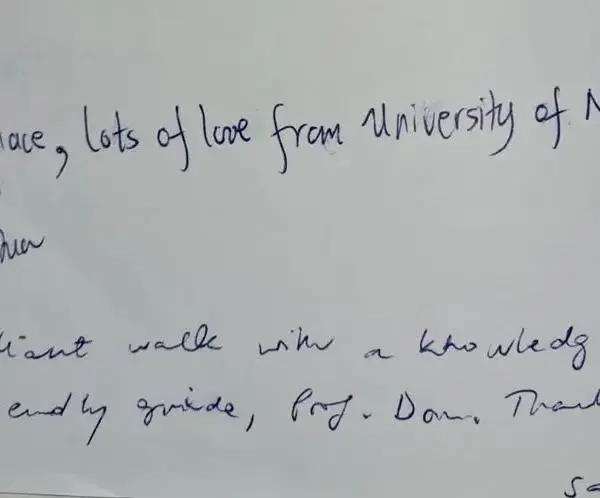 lace, lots of love from University of N
liant walk with a knowledg
endly guide, Prof. Dom. Than
sa